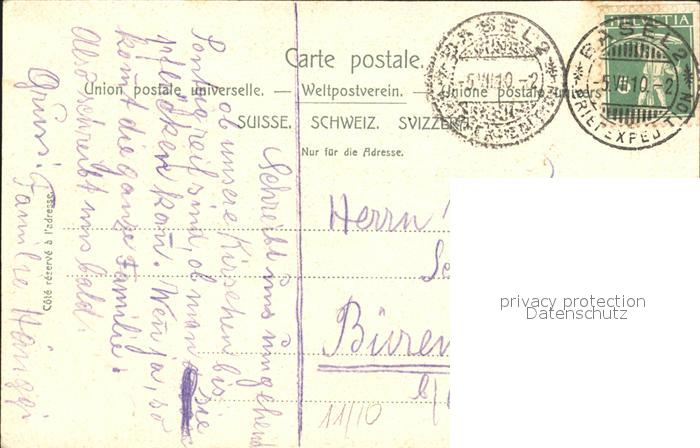 Carte postale.
Union postale universelle. — Weltpostverein. — Unione postale univers
SUISSE. SCHWEIZ. SVIZZERA
Nur für die Adresse.
Côté réservé à l'adresse.
HELVETIA
BASEL 2
5.VII.10.-2
BRIEFEXPEDITION
BASEL 2
5.VII.10.-2
BRIEFEXPEDITION
Schreibt uns umgehend
ob unsere Kirschen bis
Sontig reif sind, ob man sie
pflücken kann. Wen ja, so
komt die ganze Familie.
Also schreibt uns bald.
Gruss
Familie Hänggi
Herrn
Büren
11/10
privacy protection
Datenschutz